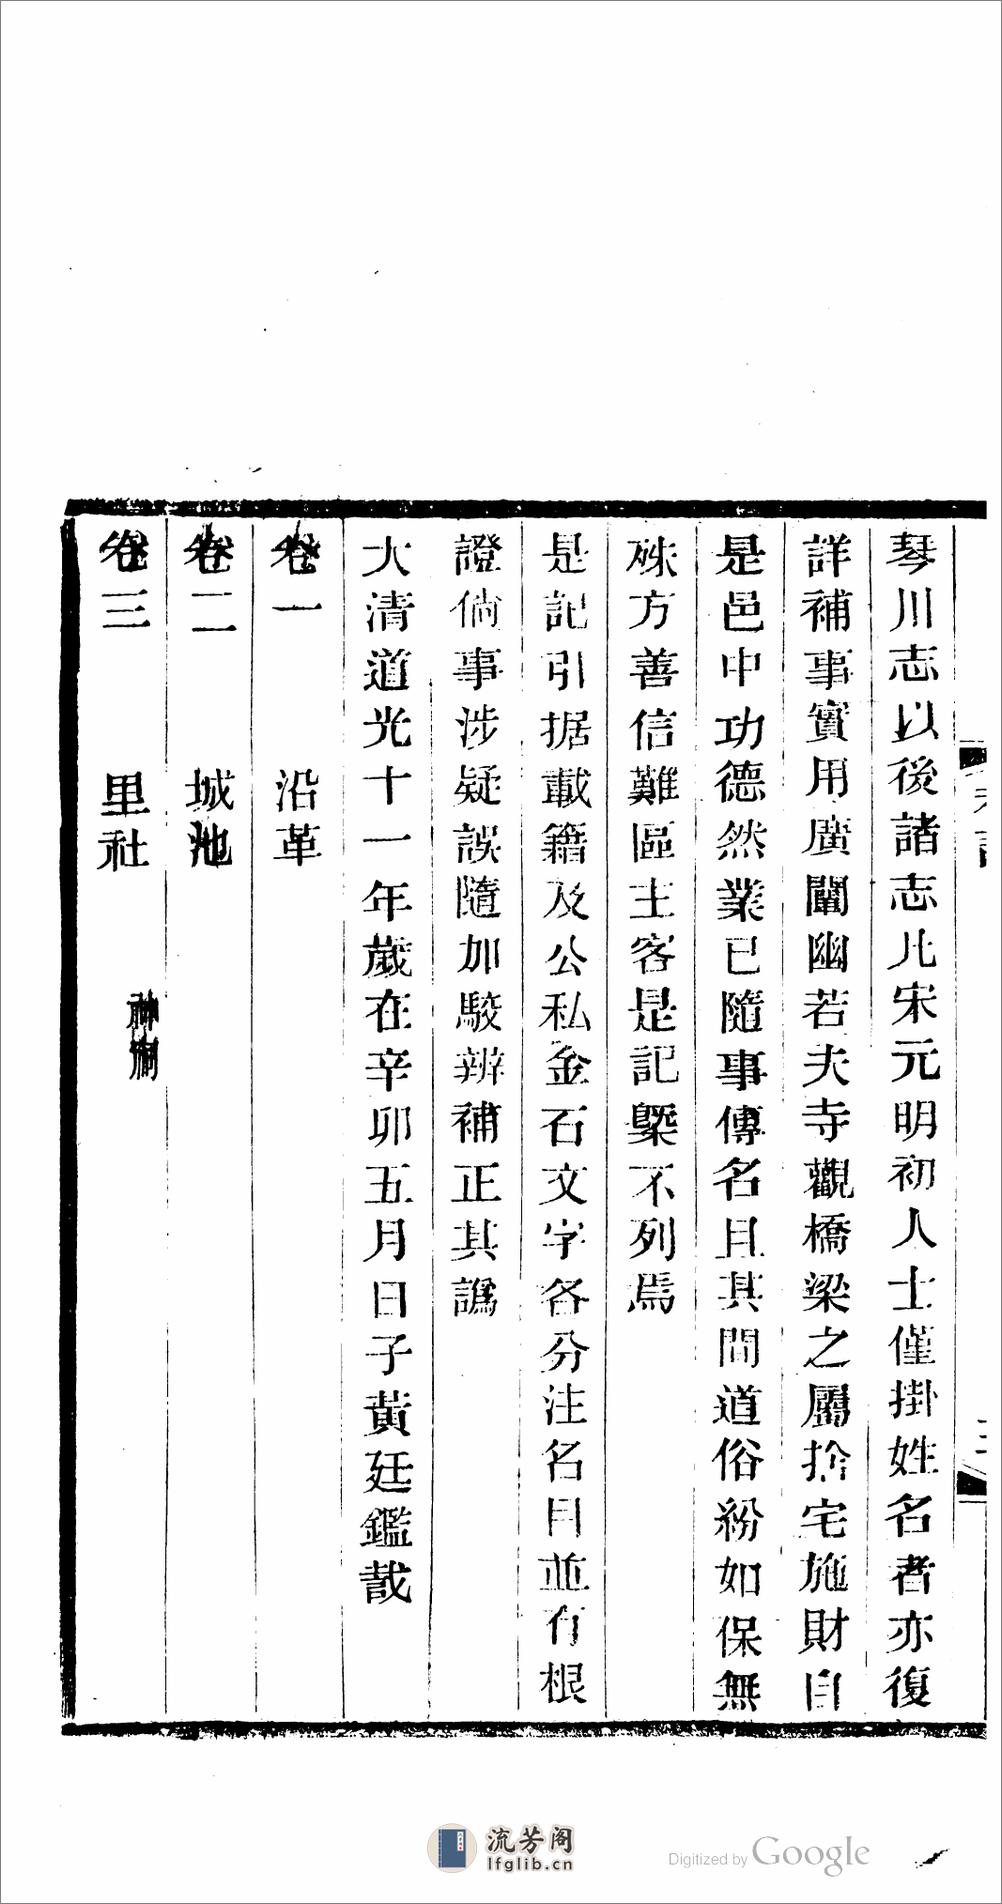 琴川志以後諸志凡宋元明初人士僅掛姓名者亦復
詳補事實用廣闡幽若夫寺觀橋梁之屬捨宅施財自
是邑中功德然業已隨事傳名且其間道俗紛如保無
殊方善信難區主客是記槩不列焉
是記引据載籍及公私金石文字各分注名目並有根
證倘事涉疑誤隨加駮辨補正其譌
大清道光十一年歲在辛卯五月日子黃廷鑑識
卷一 沿革
卷二 城池
卷三 里社 神廟
流芳阁
lfglib.cn
Digitized by Google